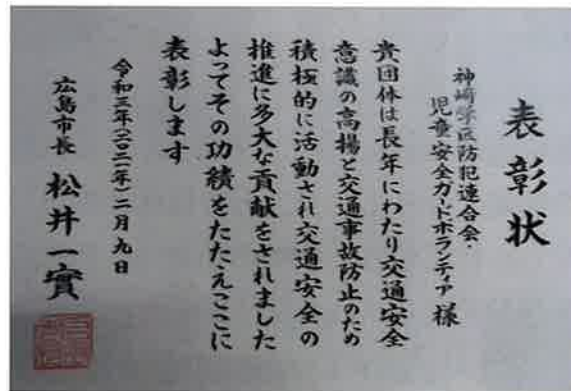 表彰状
神崎学区防犯連合会・
児童安全ガードボランティア 様
貴団体は長年にわたり交通安全
意識の高揚と交通事故防止のため
積極的に活動され交通安全の
推進に多大な貢献をされました
よってその功績をたたえここに
表彰します
令和三年(二〇二一年)二月九日
広島市長 松井一實